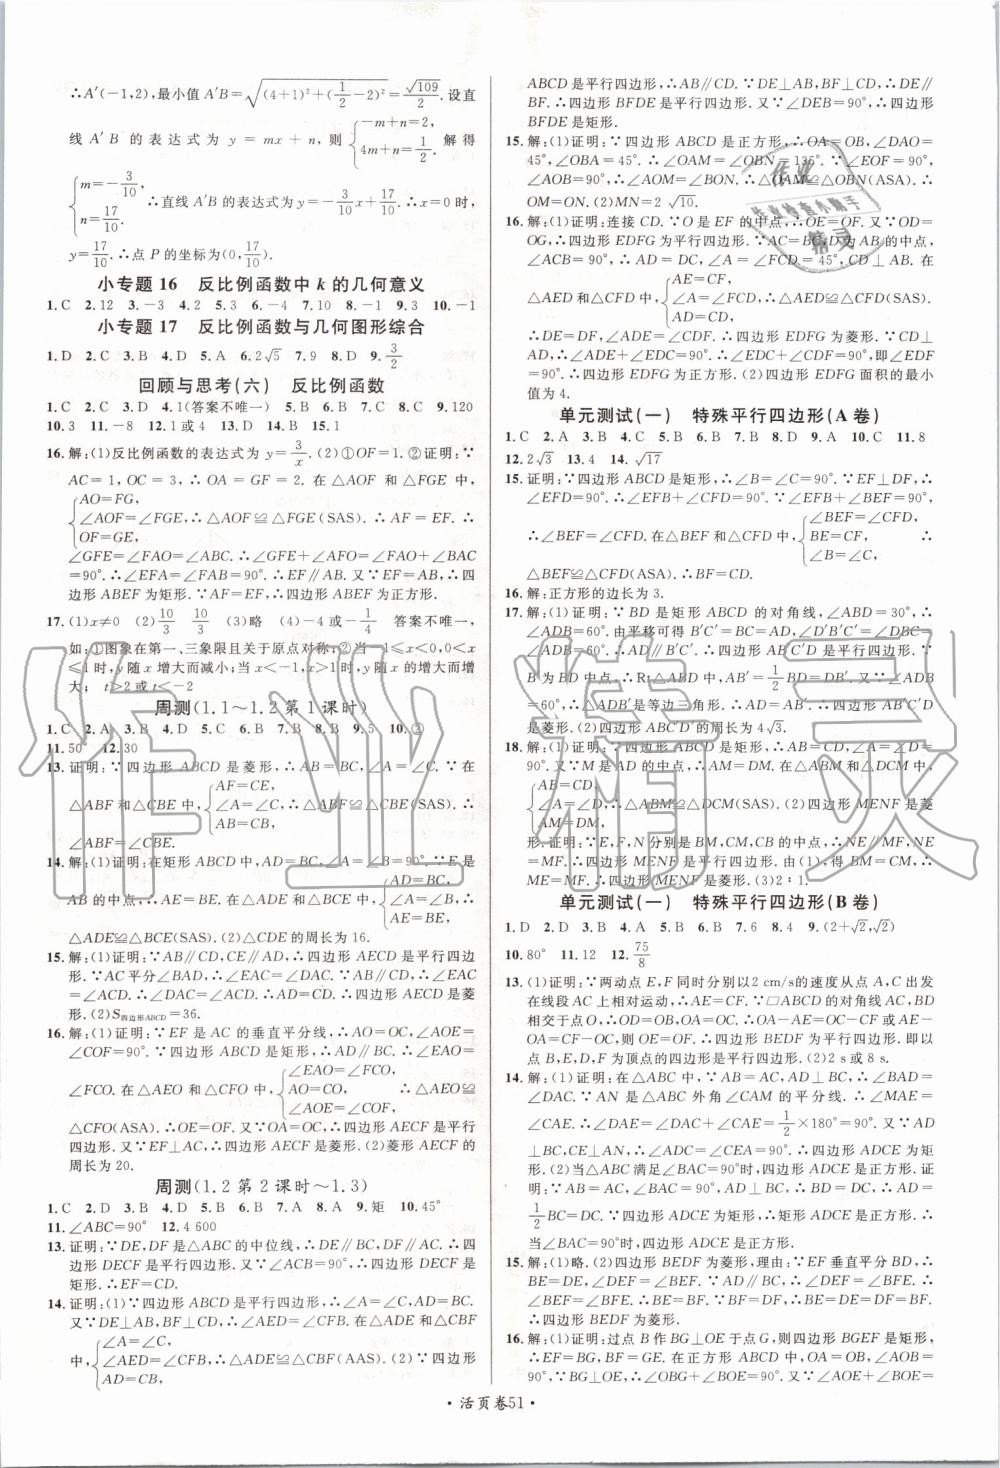 ∴A′(-1,2),最小值 A′B=√((4+1)²+(1/2-2)²)=√109/2.设直
线 A′B 的表达式为 y=mx+n,则{-m+n=2, 4m+n=1/2. 解得
{m=-3/10, n=17/10. ∴直线A′B的表达式为y=-3/10x+17/10.∴x=0时,
y=17/10.∴点P的坐标为(0,17/10).
小专题16 反比例函数中k的几何意义
1.C 2.12 3.-3 4.2 5.3 6.-4 7.10 8.-1 9.3 10.-1
小专题17 反比例函数与几何图形综合
1.D 2.C 3.B 4.D 5.A 6.2√5 7.9 8.D 9.3/2
回顾与思考(六) 反比例函数
1.C 2.C 3.D 4.1(答案不唯一) 5.B 6.B 7.C 8.C 9.120
10.3 11.-8 12.1或4 13.D 14.B 15.1
16.解:(1)反比例函数的表达式为y=3/x.(2)①OF=1.②证明:∵
AC=1,OC=3,∴OA=GF=2.在△AOF和△FGE中,
{AO=FG, ∠AOF=∠FGE, OF=GE, ∴△AOF≌△FGE(SAS).∴AF=EF.∴
∠GFE=∠FAO=∠ABC.∴∠GFE+∠AFO=∠FAO+∠BAC
=90°.∴∠EFA=∠FAB=90°.∴EF∥AB.又∵EF=AB,∴四
边形ABEF为矩形.∵AF=EF,∴四边形ABEF为正方形.
17.(1)x≠0 (2)10/3 10/3 (3)略 (4)-4或-1/4 答案不唯一,
如:①图象在第一、三象限且关于原点对称;②当-1≤x<0,0<x
≤1时,y随x增大而减小;当x<-1,x>1时,y随x的增大而增
大; t>2或t<-2
周测(1.1~1.2第1课时)
1.C 2.A 3.B 4.D 5.D 6.A 7.B 8.B 9.5 10.②
11.50° 12.30
13.证明:∵四边形ABCD是菱形,∴AB=BC,∠A=∠C.∵在
△ABF和△CBE中,{AF=CE, ∠A=∠C, AB=CB, ∴△ABF≌△CBE(SAS).∴
∠ABF=∠CBE.
14.解:(1)证明:在矩形ABCD中,AD=BC,∠A=∠B=90°.∵E是
AB的中点,∴AE=BE.在△ADE和△BCE中,{AD=BC, ∠A=∠B, AE=BE, ∴
△ADE≌△BCE(SAS).(2)△CDE的周长为16.
15.解:(1)证明:∵AB∥CD,CE∥AD,∴四边形AECD是平行四边
形.∵AC平分∠BAD,∴∠EAC=∠DAC.∵AB∥CD,∴∠EAC
=∠ACD.∴∠DAC=∠ACD.∴AD=CD.∴四边形AECD是菱
形.(2)S四边形ABCD=36.
16.解:(1)证明:∵EF是AC的垂直平分线,∴AO=OC,∠AOE=
∠COF=90°.∵四边形ABCD是矩形,∴AD∥BC.∴∠EAO=
∠FCO.在△AEO和△CFO中,{∠EAO=∠FCO, AO=CO, ∠AOE=∠COF, ∴△AEO≌
△CFO(ASA).∴OE=OF.又∵OA=OC,∴四边形AECF是平行
四边形.又∵EF⊥AC,∴四边形AECF是菱形.(2)菱形AECF的
周长为20.
周测(1.2第2课时~1.3)
1.C 2.D 3.D 4.D 5.D 6.B 7.B 8.A 9.矩 10.45°
11.∠ABC=90° 12.4 600
13.证明:∵DE,DF是△ABC的中位线,∴DE∥BC,DF∥AC.∴四
边形DECF是平行四边形.又∵∠ACB=90°,∴四边形DECF是
矩形.∴EF=CD.
14.证明:(1)∵四边形ABCD是平行四边形,∴∠A=∠C,AD=BC.
又∵DE⊥AB,BF⊥CD,∴∠AED=∠CFB=90°.在△ADE和△CBF
中,{∠A=∠C, ∠AED=∠CFB, AD=CB, ∴△ADE≌△CBF(AAS).(2)∵四边形
ABCD是平行四边形,∴AB∥CD.∵DE⊥AB,BF⊥CD,∴DE∥
BF.∴四边形BFDE是平行四边形.又∵∠DEB=90°,∴四边形
BFDE是矩形.
15.解:(1)证明:∵四边形ABCD是正方形,∴OA=OB,∠DAO=
45°,∠OBA=45°.∴∠OAM=∠OBN=135°.∵∠EOF=90°,
∠AOB=90°,∴∠AOM=∠BON.∴△OAM≌△OBN(ASA).∴
OM=ON.(2)MN=2√10.
16.解:(1)证明:连接CD.∵O是EF的中点,∴OE=OF.又∵OD=
OG,∴四边形EDFG为平行四边形.∵D为AB的中点,
∠ACB=90°,∴AD=DC,∠A=∠FCD=45°,CD⊥AB.
在△ADE和△CDF中,{AE=CF, ∠A=∠FCD, AD=CD, ∴△ADE≌△CDF(SAS).
∴DE=DF,∠ADE=∠CDF.∴四边形EDFG为菱形.∵CD⊥
AD,∴∠ADE+∠EDC=∠EDC+∠CDF=90°,即∠EDF
=90°.∴四边形EDFG为正方形.(2)四边形EDFG面积的最小
值为4.
单元测试(一) 特殊平行四边形(A卷)
1.C 2.A 3.B 4.C 5.C 6.B 7.D 8.B 9.A 10.C 11.8
12.2√3 13.4 14.√17
15.证明:∵四边形ABCD是矩形,∴∠B=∠C=90°.∵EF⊥DF,∴
∠EFD=90°.∴∠EFB+∠CFD=90°.∵∠EFB+∠BEF=90°,
∴∠BEF=∠CFD.在△BEF和△CFD中,{∠BEF=∠CFD, BE=CF, ∠B=∠C, ∴
△BEF≌△CFD(ASA).∴BF=CD.
16.解:正方形的边长为3.
17.解:(1)证明:∵BD是矩形ABCD的对角线,∠ABD=30°,∴
∠ADB=60°.由平移可得B′C′=BC=AD,∠D′B′C′=∠DBC=
∠ADB=60°.∴AD∥B′C′.∴四边形AB′C′D是平行四边形.∵
B′为BD中点,∴Rt△ABD中,AB′=1/2BD=DB′.又∵∠ADB
=60°,∴△ADB′是等边三角形.∴AD=AB′.∴四边形AB′C′D是
菱形.(2)四边形ABC′D′的周长为4√3.
18.解:(1)证明:∵四边形ABCD是矩形,∴AB=CD,∠A=∠D=
90°.又∵M是AD的中点,∴AM=DM.在△ABM和△DCM中,
{AB=DC, ∠A=∠D, AM=DM, ∴△ABM≌△DCM(SAS).(2)四边形MENF是菱
形.证明:∵E,F,N分别是BM,CM,CB的中点,∴NE∥MF,NE
=MF.∴四边形MENF是平行四边形.由(1),得BM=CM,∴
ME=MF.∴四边形MENF是菱形.(3)2∶1.
单元测试(一) 特殊平行四边形(B卷)
1.D 2.D 3.A 4.C 5.B 6.B 7.6 8.4 9.(2+√2,√2)
10.80° 11.12 12.75/8
13.(1)证明:∵两动点E,F同时分别以2 cm/s的速度从点A,C出发
在线段AC上相对运动,∴AE=CF.∵▱ABCD的对角线AC,BD
相交于点O,∴OD=OB,OA=OC.∴OA-AE=OC-CF或AE-
OA=CF-OC,则OE=OF.∴四边形BEDF为平行四边形,即以
点B,E,D,F为顶点的四边形是平行四边形.(2)2 s或8 s.
14.解:(1)证明:在△ABC中,∵AB=AC,AD⊥BC,∴∠BAD=
∠DAC.∵AN是△ABC外角∠CAM的平分线.∴∠MAE=
∠CAE.∴∠DAE=∠DAC+∠CAE=1/2×180°=90°.又∵AD
⊥BC,CE⊥AN,∴∠ADC=∠CEA=90°.∴四边形ADCE为矩
形.(2)当△ABC满足∠BAC=90°时,四边形ADCE是正方形.证
明:∵四边形ADCE为矩形,∴矩形ADCE是正方形.∴当
∠BAC=90°时,四边形ADCE是正方形.
15.解:(1)略.(2)四边形BEDF为菱形,理由:∵EF垂直平分BD,∴
BE=DE,∠DEF=∠BEF.∵AD∥BC,∴∠DEF=∠BFE.∴
∠BEF=∠BFE.∴BE=BF.∵BF=DF,∴BE=ED=DF=
BF.∴四边形BEDF为菱形.
16.解:(1)证明:过点B作BG⊥OE于点G,则四边形BGEF是矩形,
∴EF=BG,BF=GE.在正方形ABCD中,OA=OB,∠AOB=
90°.∵BG⊥OE,∴∠OBG+∠BOE=90°.又∵∠AOE+∠BOE=
• 活页卷51 •